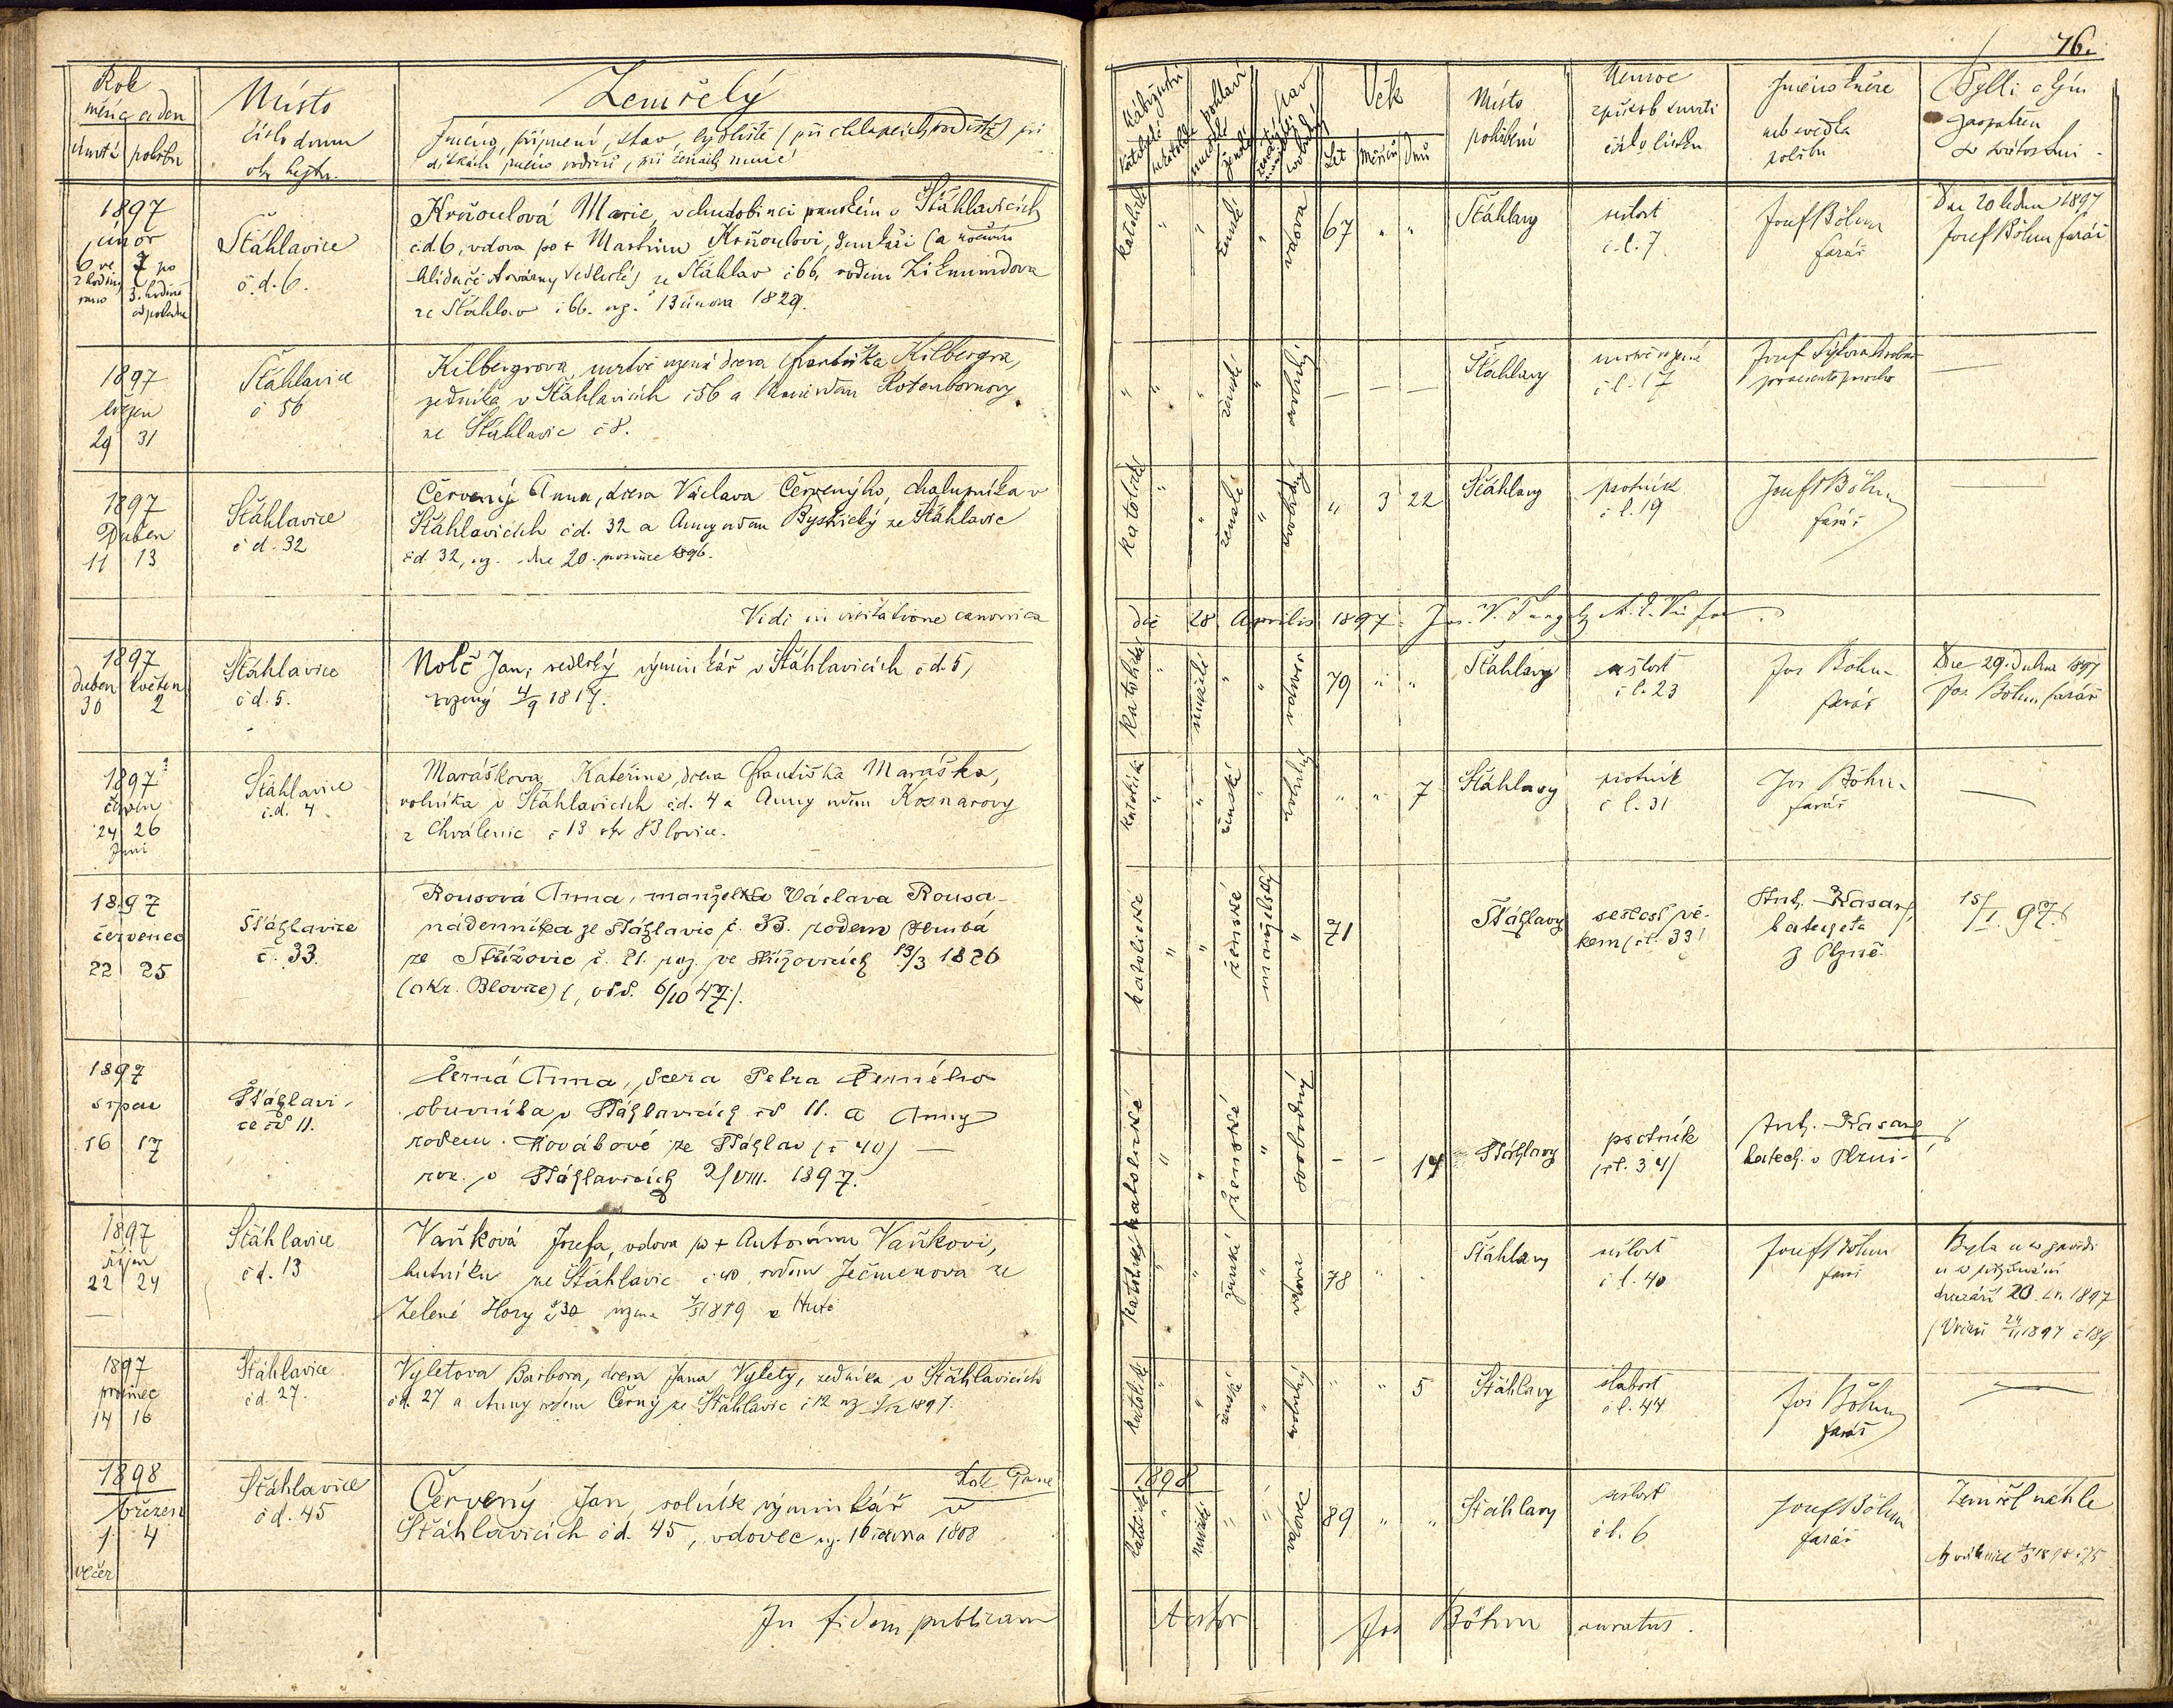 76.
Rok
měsíc a den
úmrtí pohřbu
Místo
číslo domu
okr. hejtm.
Zemřelý
Jméno, příjmení, stav, bydliště (při chlapcích rodiště) při
dítkách jméno rodičů, při ženách muže
náboženství
katolické
nekatolické
pohlaví
mužské
ženské
stav
Věk
Let Měsíců Dnů
Místo
pohřbení
Nemoc
způsob smrti
číslo lístku
Jméno kněze
neb svědka
pohřbu
Byl-li a kým
zaopatřen
sv. svátostmi
1897
únor
6 ve 7 po
2 hodiny 3. hodině
ráno odpoledne
Šťáhlavice
č. d. 6.
Krňoulová Marie, v chudobinci panském v Šťáhlavicích
č.d. 6, vdova po + Martinu Krňoulovi, domkáři (a nočním
hlídači továrny Sedlecké) ze Šťáhlav č 66, rodem Zikmundova
ze Šťáhlav č 66. nar. 13 února 1829.
katolické " " ženské " vdova 67 " "
Šťáhlavy
sešlost
č. l. 7
Josef Böhm
farář
Dne 20 ledna 1897
Josef Böhm farář
1897
březen
29 31
Šťáhlavice
č 56
Kilbergrova, mrtvě narozená dcera Františka Kilbergra,
zedníka v Šťáhlavicích č 56 a Marie rodem Rotenbornovy
ze Šťáhlavic č 8.
" " " ženské " svobodný — — —
Šťáhlavy
mrtvě rozené
č l. 17
Josef Sýkora hrobař
—
1897
Duben
11 13
Šťáhlavice
č d. 32
Červený Anna, dcera Václava Červenýho, chalupníka v
Šťáhlavicích č d. 32 a Anny rodem Bystrický ze Šťáhlavic
č d 32, nar. dne 20. prosince 1896.
katolické " " ženské " svobodný " 3 22
Šťáhlavy
psotník
č l. 19
Josef Böhm
farář
—
Vidi in visitatione canonica
die 28 Aprilis 1897.
1897
duben květen
30 2
Šťáhlavice
č d. 5.
Nolč Jan, selský výminkář v Šťáhlavicích č d. 5,
rozený 4/9 1817.
katolické " mužské " " vdovec 79 " "
Šťáhlavy
sešlost
č l. 23
Jos Böhm
farář
Dne 29. dubna 1897
Jos. Böhm, farář
1897
červen
24 26
Juni
Šťáhlavice
č. d. 4
Maráškova Kateřina, dcera Františka Maráška,
rolníka v Šťáhlavicích čd. 4 a Anny rodem Koznarovy
z Chválenic č 13 okr Blovice.
katolické " " ženské " svobodný " " 7
Šťáhlavy
psotník
č l. 31
Jos Böhm
farář
—
1897
červenec
22 25
Šťáhlavice
č. 33.
Rousová Anna, manželka Václava Rousa
nádenníka ze Šťáhlavic č. 33. rodem Hrubá
ze Střížovic č. 21. nar. ve Střížovicích 13/3 1826
(okr. Blovice) (, odd. 6/10 47).
katolické " " ženské manželský " 71
Šťáhlavy
sešlost vě-
kem (čl. 33)
Ant. Kasan,
katecheta
z Plzně.
15/I. 97.
1897
srpen
16 17
Šťáhlavi-
ce čd 11.
Černá Anna, dcera Petra Černého
obuvníka v Šťáhlavicích čd 11. a Anny
rodem Kovářové ze Šťáhlav (č 40) —
nar. v Šťáhlavicích 2/VIII. 1897.
katolické " " ženské " svobodný - - 14
Šťáhlavy
psotník
(čl. 34)
Ant. Kasan
katech. v Plzni
1897
říjen
22 24
Šťáhlavice
č d. 13
Vaňková Josefa, vdova po + Antonínu Vaňkovi,
hutníku ze Šťáhlavic č 40, rodem Ječmenova ze
Zelené Hory
katolické " " ženské " vdova 78 " "
Šťáhlavy
sešlost
č l. 40
Josef Böhm
farář
1897
prosinec
14 16
Šťáhlavice
č d. 27.
Vyletova Barbora, dcera Jana Vylety, zedníka v Šťáhlavicích
č d. 27 a Anny rodem Černý ze Šťáhlavic č 12
katolické " " ženské " svobodný " " 5
Šťáhlavy
slabost
č l. 44
Jos Böhm
farář
—
1898
březen
1. 4
večer
Šťáhlavice
č d. 45
Rok Páně
1898
Červený Jan, rolník výminkář v
Šťáhlavicích čd. 45, vdovec nar. 16 února 1808
katolické " mužské " " vdovec 89 " "
Šťáhlavy
sešlost
č l. 6
Josef Böhm
farář
Zemřel náhle
In fidem publicam
testor Jos Böhm curatus.